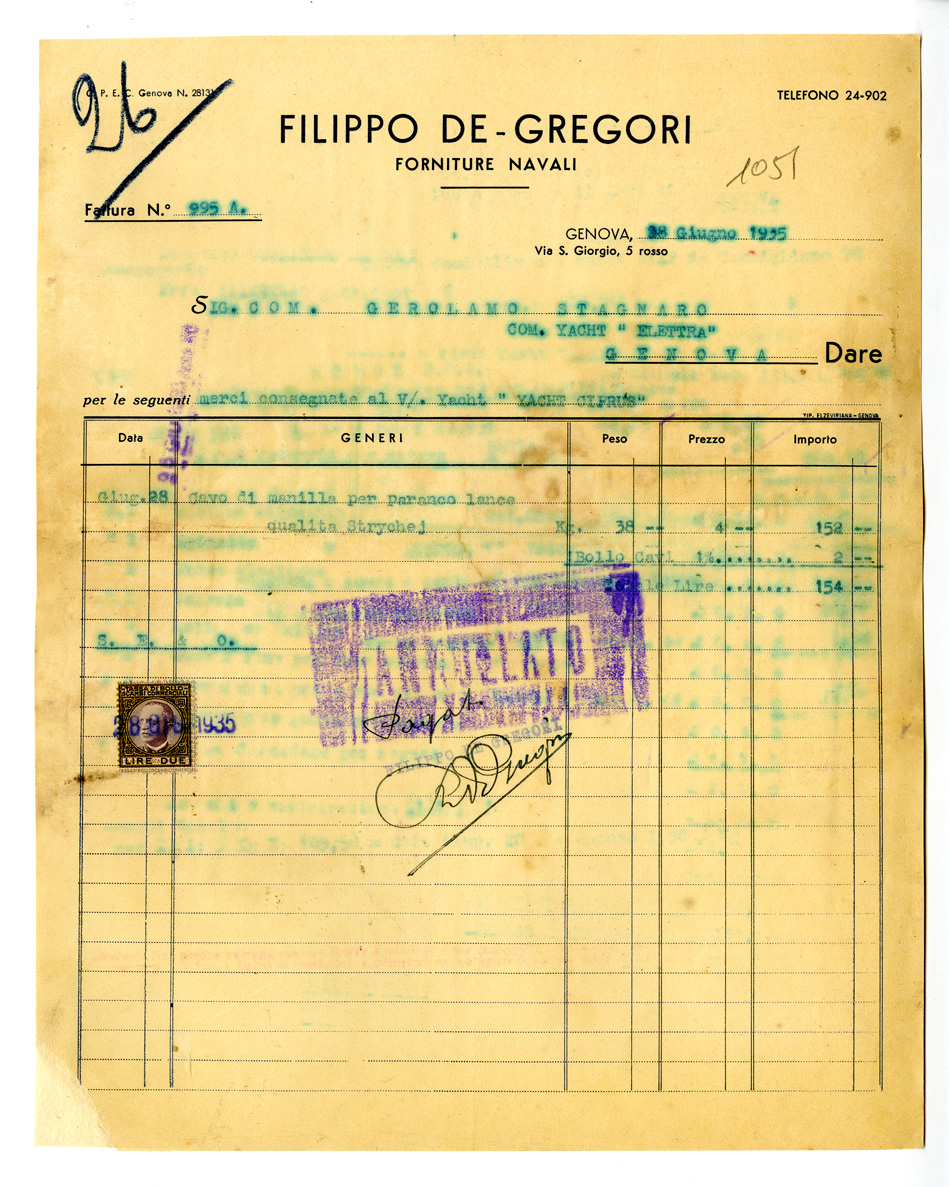 26
C. P. E. C. Genova N. 2813
TELEFONO 24-902
FILIPPO DE-GREGORI
FORNITURE NAVALI
1051
Fattura N.° 995 A.
GENOVA, 28 Giugno 1935
Via S. Giorgio, 5 rosso
SIG. COM. GEROLAMO STAGNARO
COM. YACHT " ELETTRA"
GENOVA Dare
per le seguenti merci consegnate al V/. Yacht " YACHT CIPRUS"
TIP. ELZEVIRIANA - GENOVA
Data GENERI Peso Prezzo Importo
Giug. 28 Cavo di manilla per paranco lance
qualita Strychej Kg. 38 -- 4 -- 152 --
Bollo Cavi 1%........ 2 --
Lire ....... 154 --
S. E. & O.
ANNULLATO
TASSA DI BOLLO
SCAMBI COMMERCIALI
28 GIU 1935
LIRE DUE
Pagat.
FILIPPO DE GREGORI